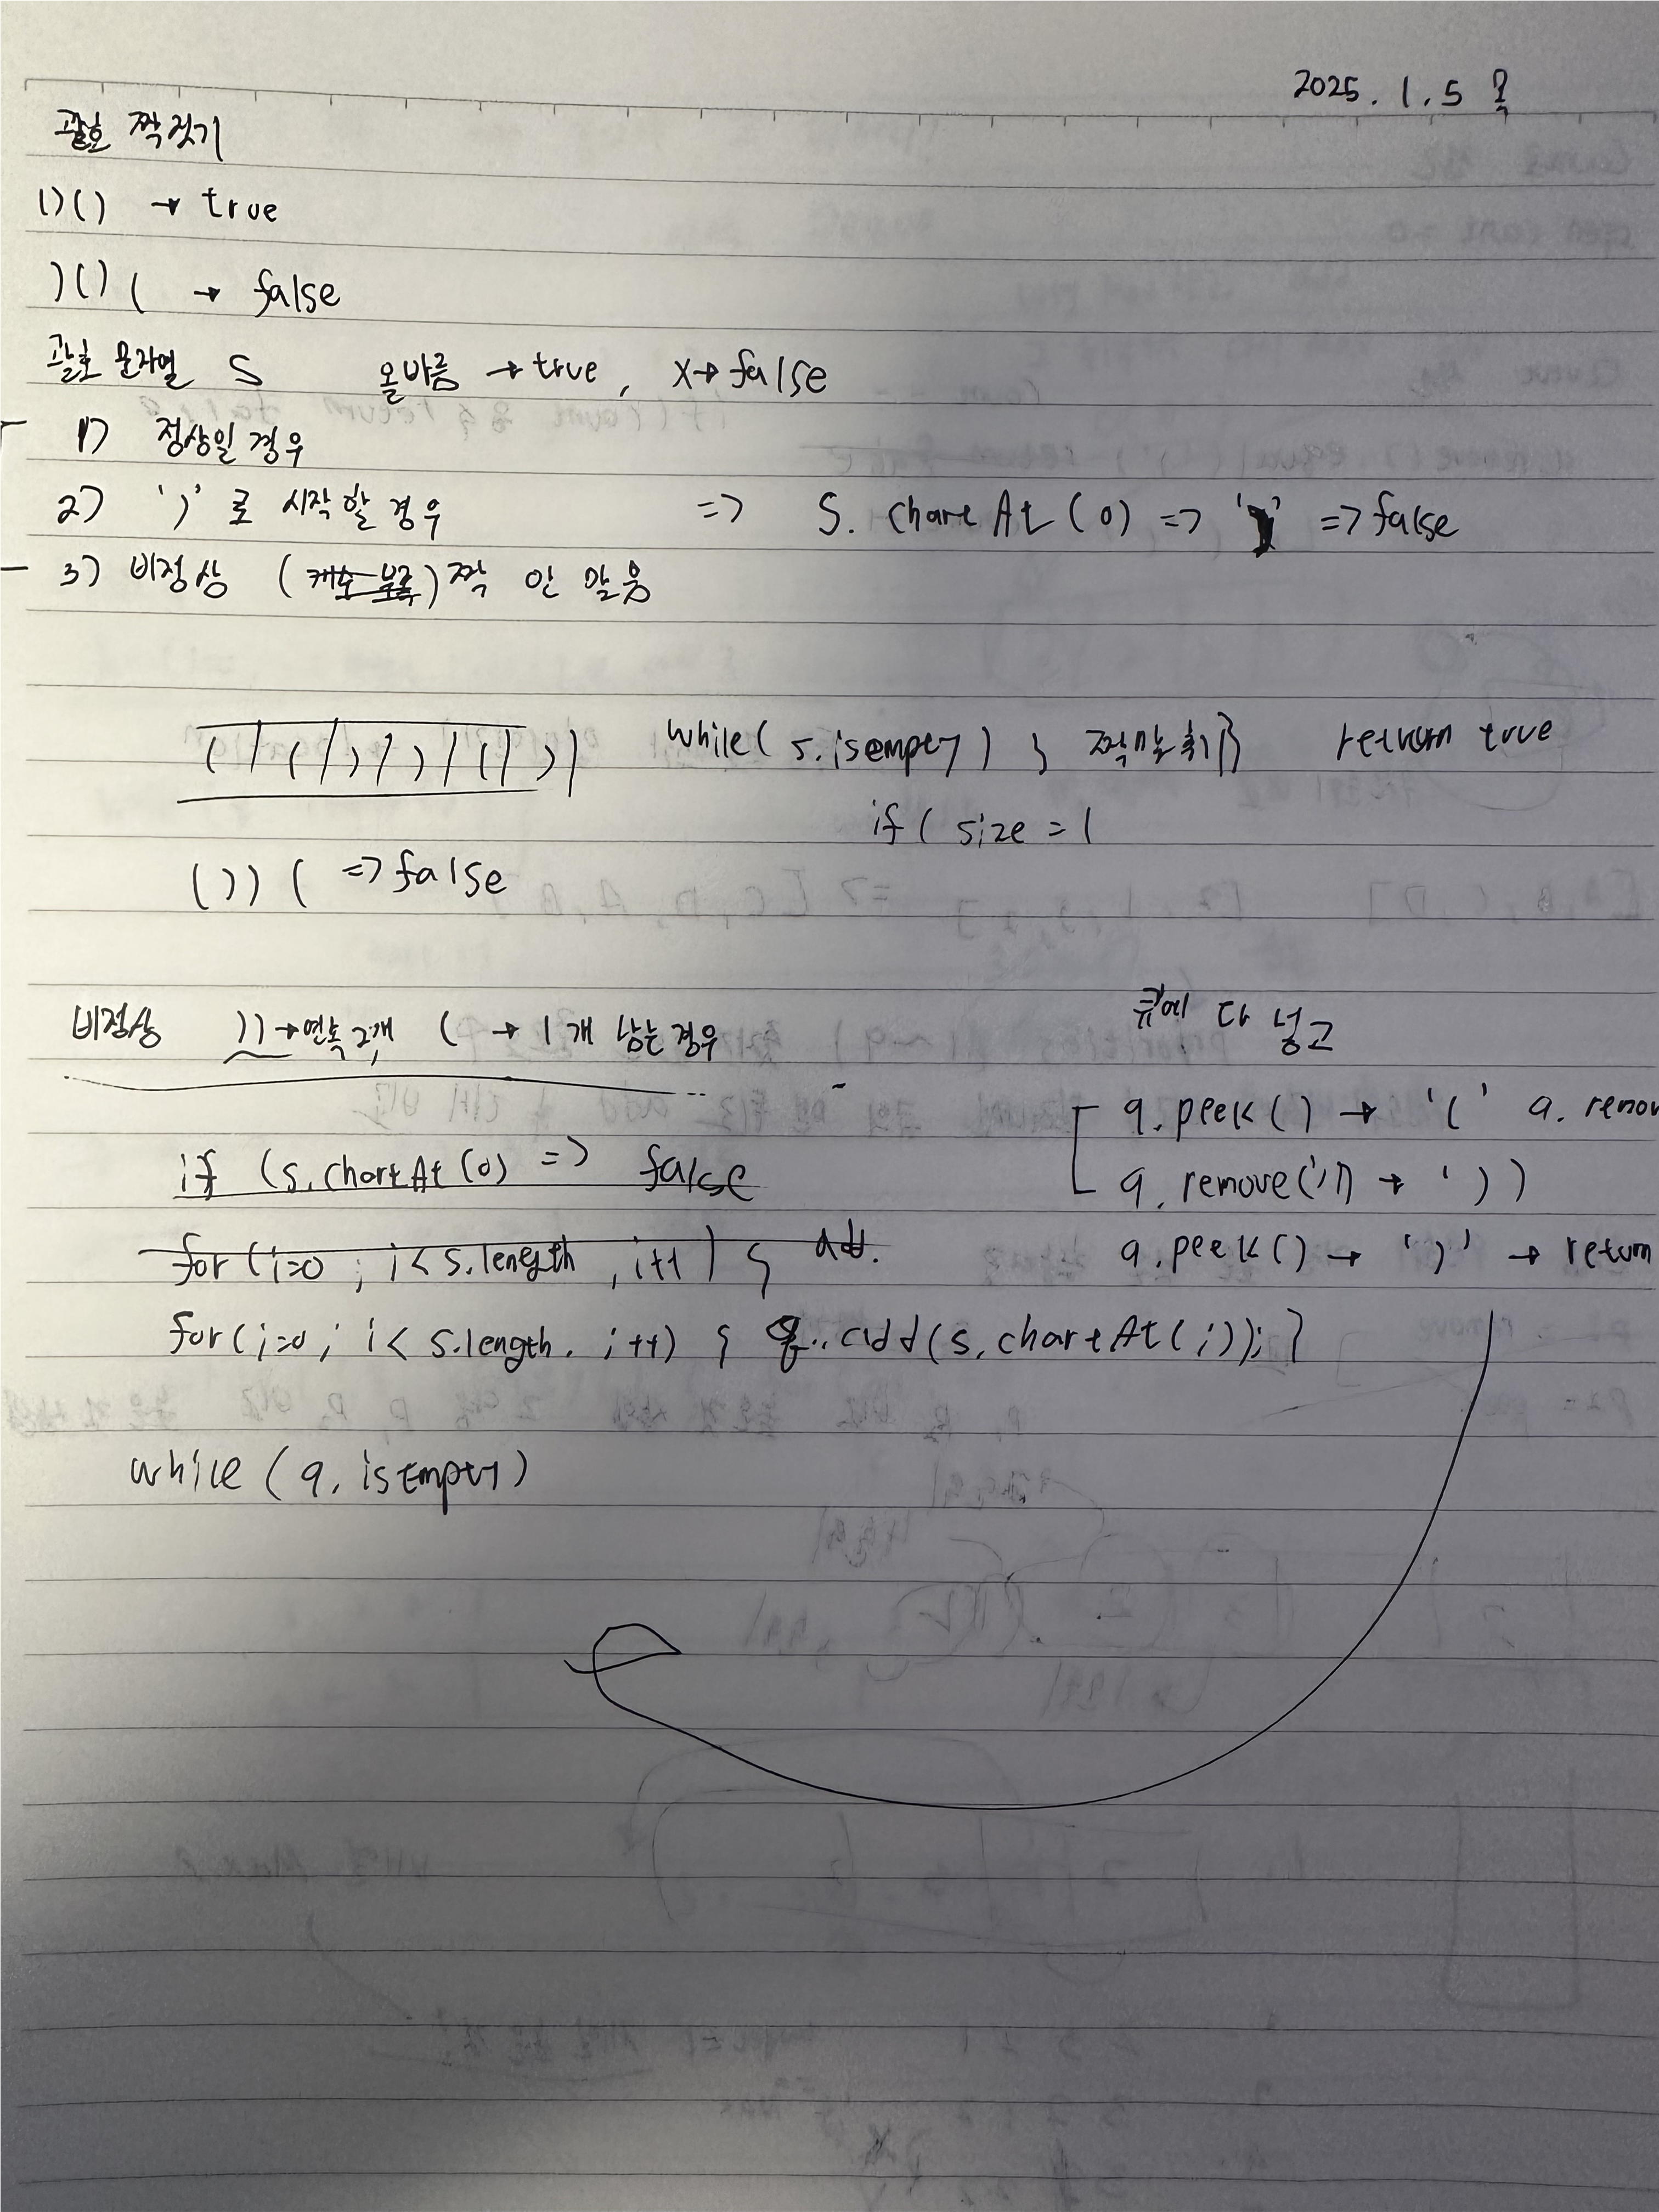 2025. 1. 5 일
괄호 짝짓기
()() → true
)()( → false
괄호 문자열 S 올바름 → true, X → false
1) 정상일 경우
2) ')' 로 시작할 경우 => S. charAt (0) => ')' => false
3) 비정상 ( ) 짝 안 맞음
( | ( | ) | ) | ( | ) | while( s.isempty ) { 짝맞추기} return true
if ( size = 1
( ) ) ( => false
비정상 )) → 연속 2개 ( → 1개 남는 경우
큐에 다 넣고
q. peek () → '(' q. remov
if (s. chartAt (0) => false
q. remove( → ' ) )
for (i=0 ; i < s.length , i++ ) { add.
q. peek () → ')' → return
for (i=0 ; i < s.length. i++) { q. add (s. chartAt (i)); }
while (q. isEmpty)